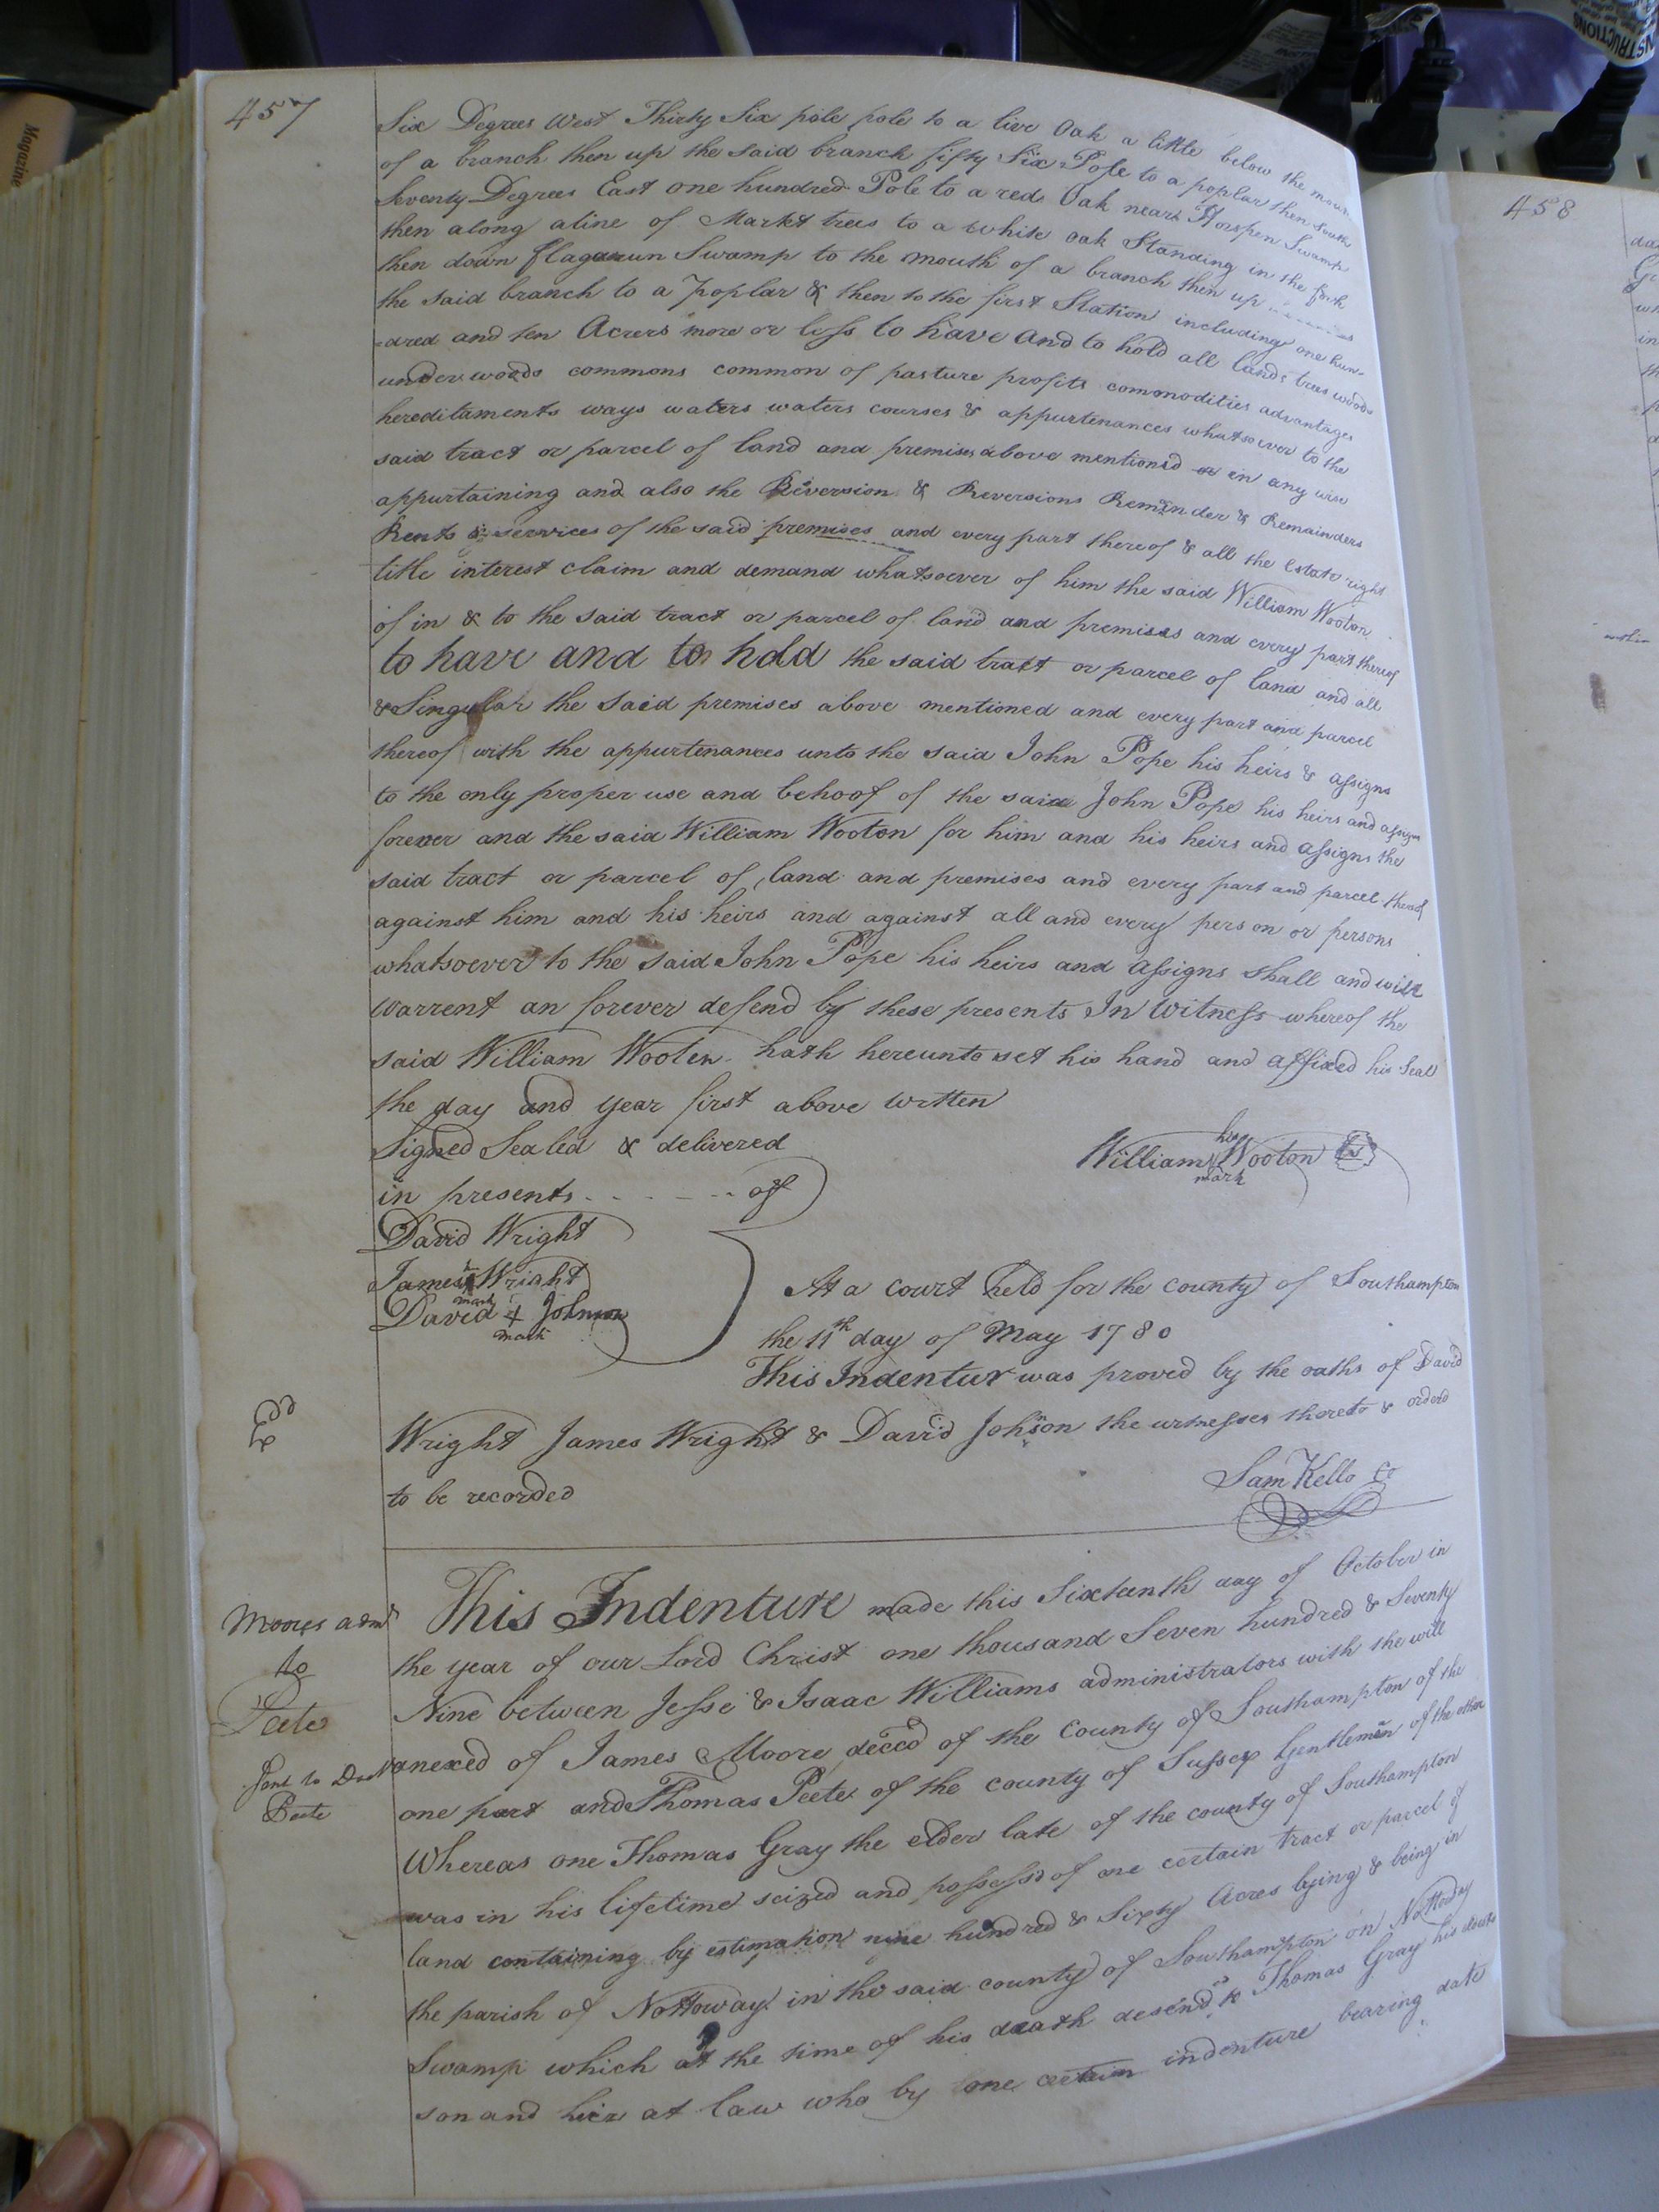 457
Six Degrees West Thirty Six pole pole to a live Oak a little below the mouth
of a branch then up the said branch fifty Six Pole to a poplar then South
Seventy Degrees East one hundred Pole to a red Oak near Horspen Swamp
then along a line of Markt trees to a white oak Standing in the fork
then down Swamp to the mouth of a branch then up
the said branch to a Poplar & then to the first Station including one hun-
-dred and ten Acrers more or less to have and to hold all lands trees woods
underwoods commons common of pasture profits commodities advantages
hereditaments ways waters waters courses & appurtenances whatsoever to the
said tract or parcel of land and premises above mentioned or in any wise
appurtaining and also the Reversion & Reversions Reminder & Remainders
Rents & services of the said premises and every part thereof & all the Estate right
title interest claim and demand whatsoever of him the said William Wooton
of in & to the said tract or parcel of land and premises and every part thereof
to have and to hold the said tract or parcel of land and all
& Singular the said premises above mentioned and every part and parcel
thereof with the appurtenances unto the said John Pope his heirs & assigns
to the only proper use and behoof of the said John Pope his heirs and assigns
forever and the said William Wooton for him and his heirs and assigns the
said tract or parcel of land and premises and every part and parcel thereof
against him and his heirs and against all and every person or persons
whatsoever to the said John Pope his heirs and assigns shall and will
warrent an forever defend by these presents In Witness whereof the
said William Wooten hath hereunto set his hand and affixed his Seal
the day and year first above written
Signed Sealed & delivered
in presents - - - - - - of
his
William Wooton LS
mark
David Wright
James Wright
mark
David + Johnson
mark
At a court held for the county of Southampton
the 11th day of May 1780
This Indentur was proved by the oaths of David
Wright James Wright & David Johnson the witnesses thereto & orderd
to be recorded
Sam Kello Cc
Moores admr
to
Peete
Sent to Doctr
Peete
This Indenture made this Sixteenth day of October in
the year of our Lord Christ one thousand Seven hundred & Seventy
Nine between Jesse & Isaac Williams administrators with the will
anexed of James Moore deced of the County of Southampton of the
one part and Thomas Peete of the county of Sussex Gentlemen of the other
Whereas one Thomas Gray the elder late of the county of Southampton
was in his lifetime seized and possessd of one certain tract or parcel of
land containing by estimation nine hundred & Sixty Acres lying & being in
the parish of Nottoway in the said county of Southampton on Nottoway
Swamp which at the time of his death desend to Thomas Gray his
son and heir at law who by one certain indenture bearing date
458
Magazine